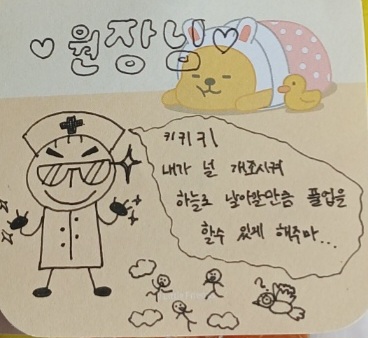 ♡ 원장님 ♡
키키키
내가 널 개조시켜
하늘로 날아갈만큼 풀업을
할수 있게 해주마...
?